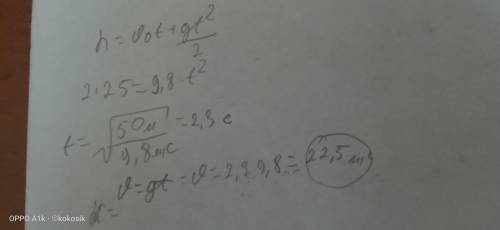 h = v₀t + gt²/2
2·25 = 9,8 · t²
t = √(50м / 9,8 м/с) = 2,3 с
v = gt = v = 2,3 9,8 = 22,5 м/с
OPPO A1k · ©kokosik